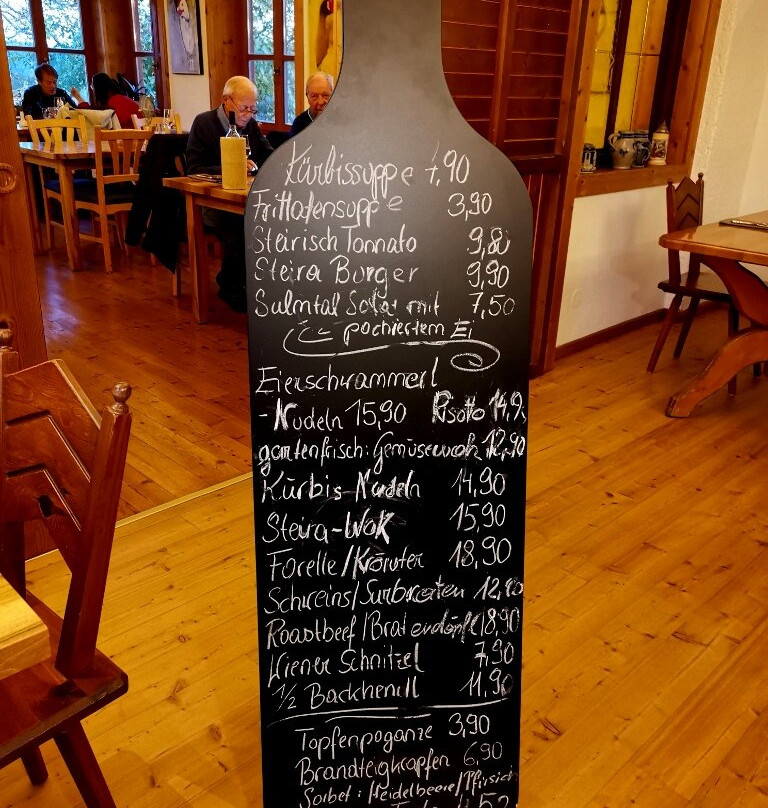 Kürbissuppe 4,90
Frittatensuppe 3,90
Steirisch Tonnato 9,80
Steira Burger 9,90
Sulmtal Salat mit 7,50
pochiertem Ei
Eierschwammerl
-Nudeln 15,90 Risotto 14,9
gartenfrisch: Gemüsewok 12,90
Kürbis-Nudeln 14,90
Steira-Wok 15,90
Forelle/Kräuter 18,90
Schweins/Surbraten 12,90
Roastbeef/Braterdäpfel 18,90
Wiener Schnitzel 7,90
1/2 Backhendl 11,90
Topfenpoganze 3,90
Brandteigkrapfen 6,90
Sorbet: Heidelbeere/Pfirsich